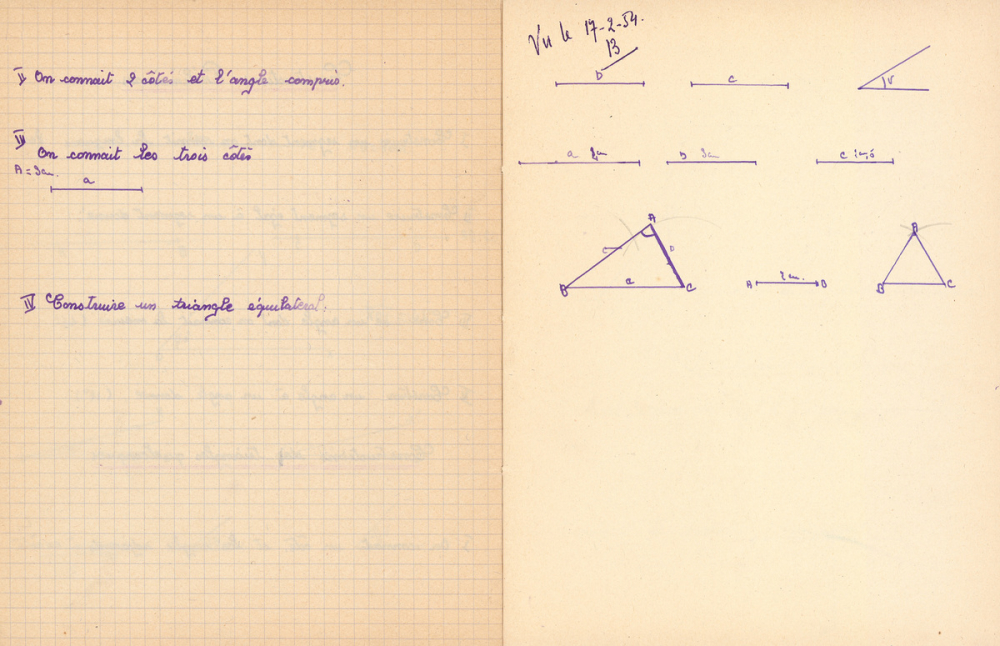 II On connait 2 côtés et l'angle compris.
III
On connait les trois côtés
A = 3cm.
a
IV Construire un triangle équilatéral.
Vu le 17-2-54.
13
b
c
V
a
b 3cm
c
A
c
b
B
a
C
A
2cm.
B
A
B
C